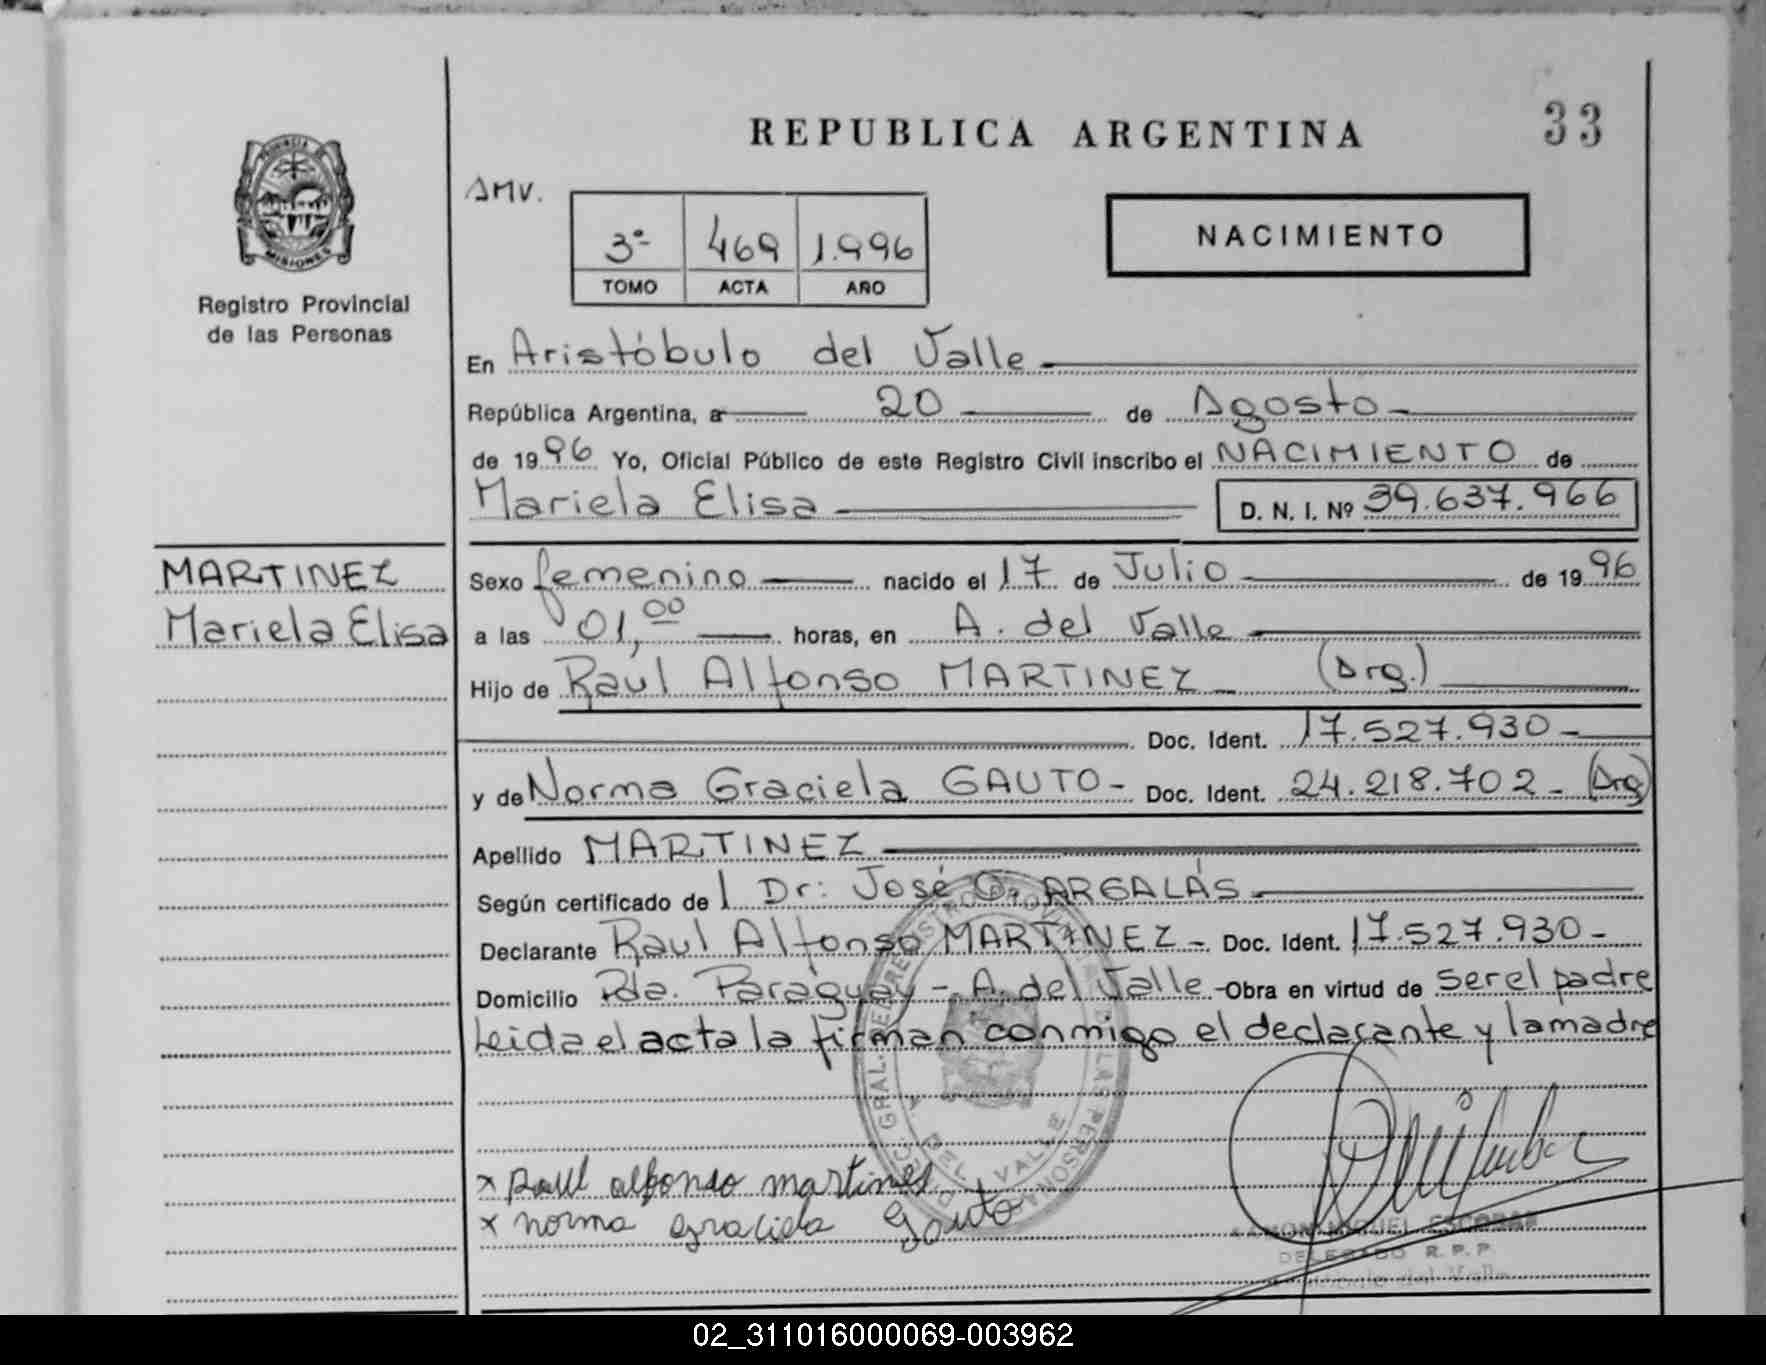 33
REPUBLICA ARGENTINA
PROVINCIA DE
MISIONES
Registro Provincial
de las Personas
AMV.
3º 469 1.996
TOMO ACTA AÑO
NACIMIENTO
En Aristóbulo del Valle
República Argentina, a 20 de Agosto
de 1996 Yo, Oficial Público de este Registro Civil inscribo el NACIMIENTO de
Mariela Elisa D. N. I. Nº 39.637.966
MARTINEZ
Mariela Elisa
Sexo femenino nacido el 17 de Julio de 1996
a las 01,00 horas, en A. del Valle
Hijo de Raúl Alfonso MARTINEZ (Arg.)
Doc. Ident. 17.527.930-
y de Norma Graciela GAUTO- Doc. Ident. 24.218.702- (Arg)
Apellido MARTINEZ
Según certificado de l Dr: José O. ARGALÁS
Declarante Raul Alfonso MARTINEZ- Doc. Ident. 17.527.930-
Domicilio Pda. Paraguay - A. del Valle - Obra en virtud de ser el padre
Leida el acta la firman conmigo el declarante y la madre
x Raul alfonso martines
x norma graciela Gauto
RAMON MIGUEL ESCOBAR
DELEGADO R. P. P.
Aristóbulo del Valle
02_311016000069-003962